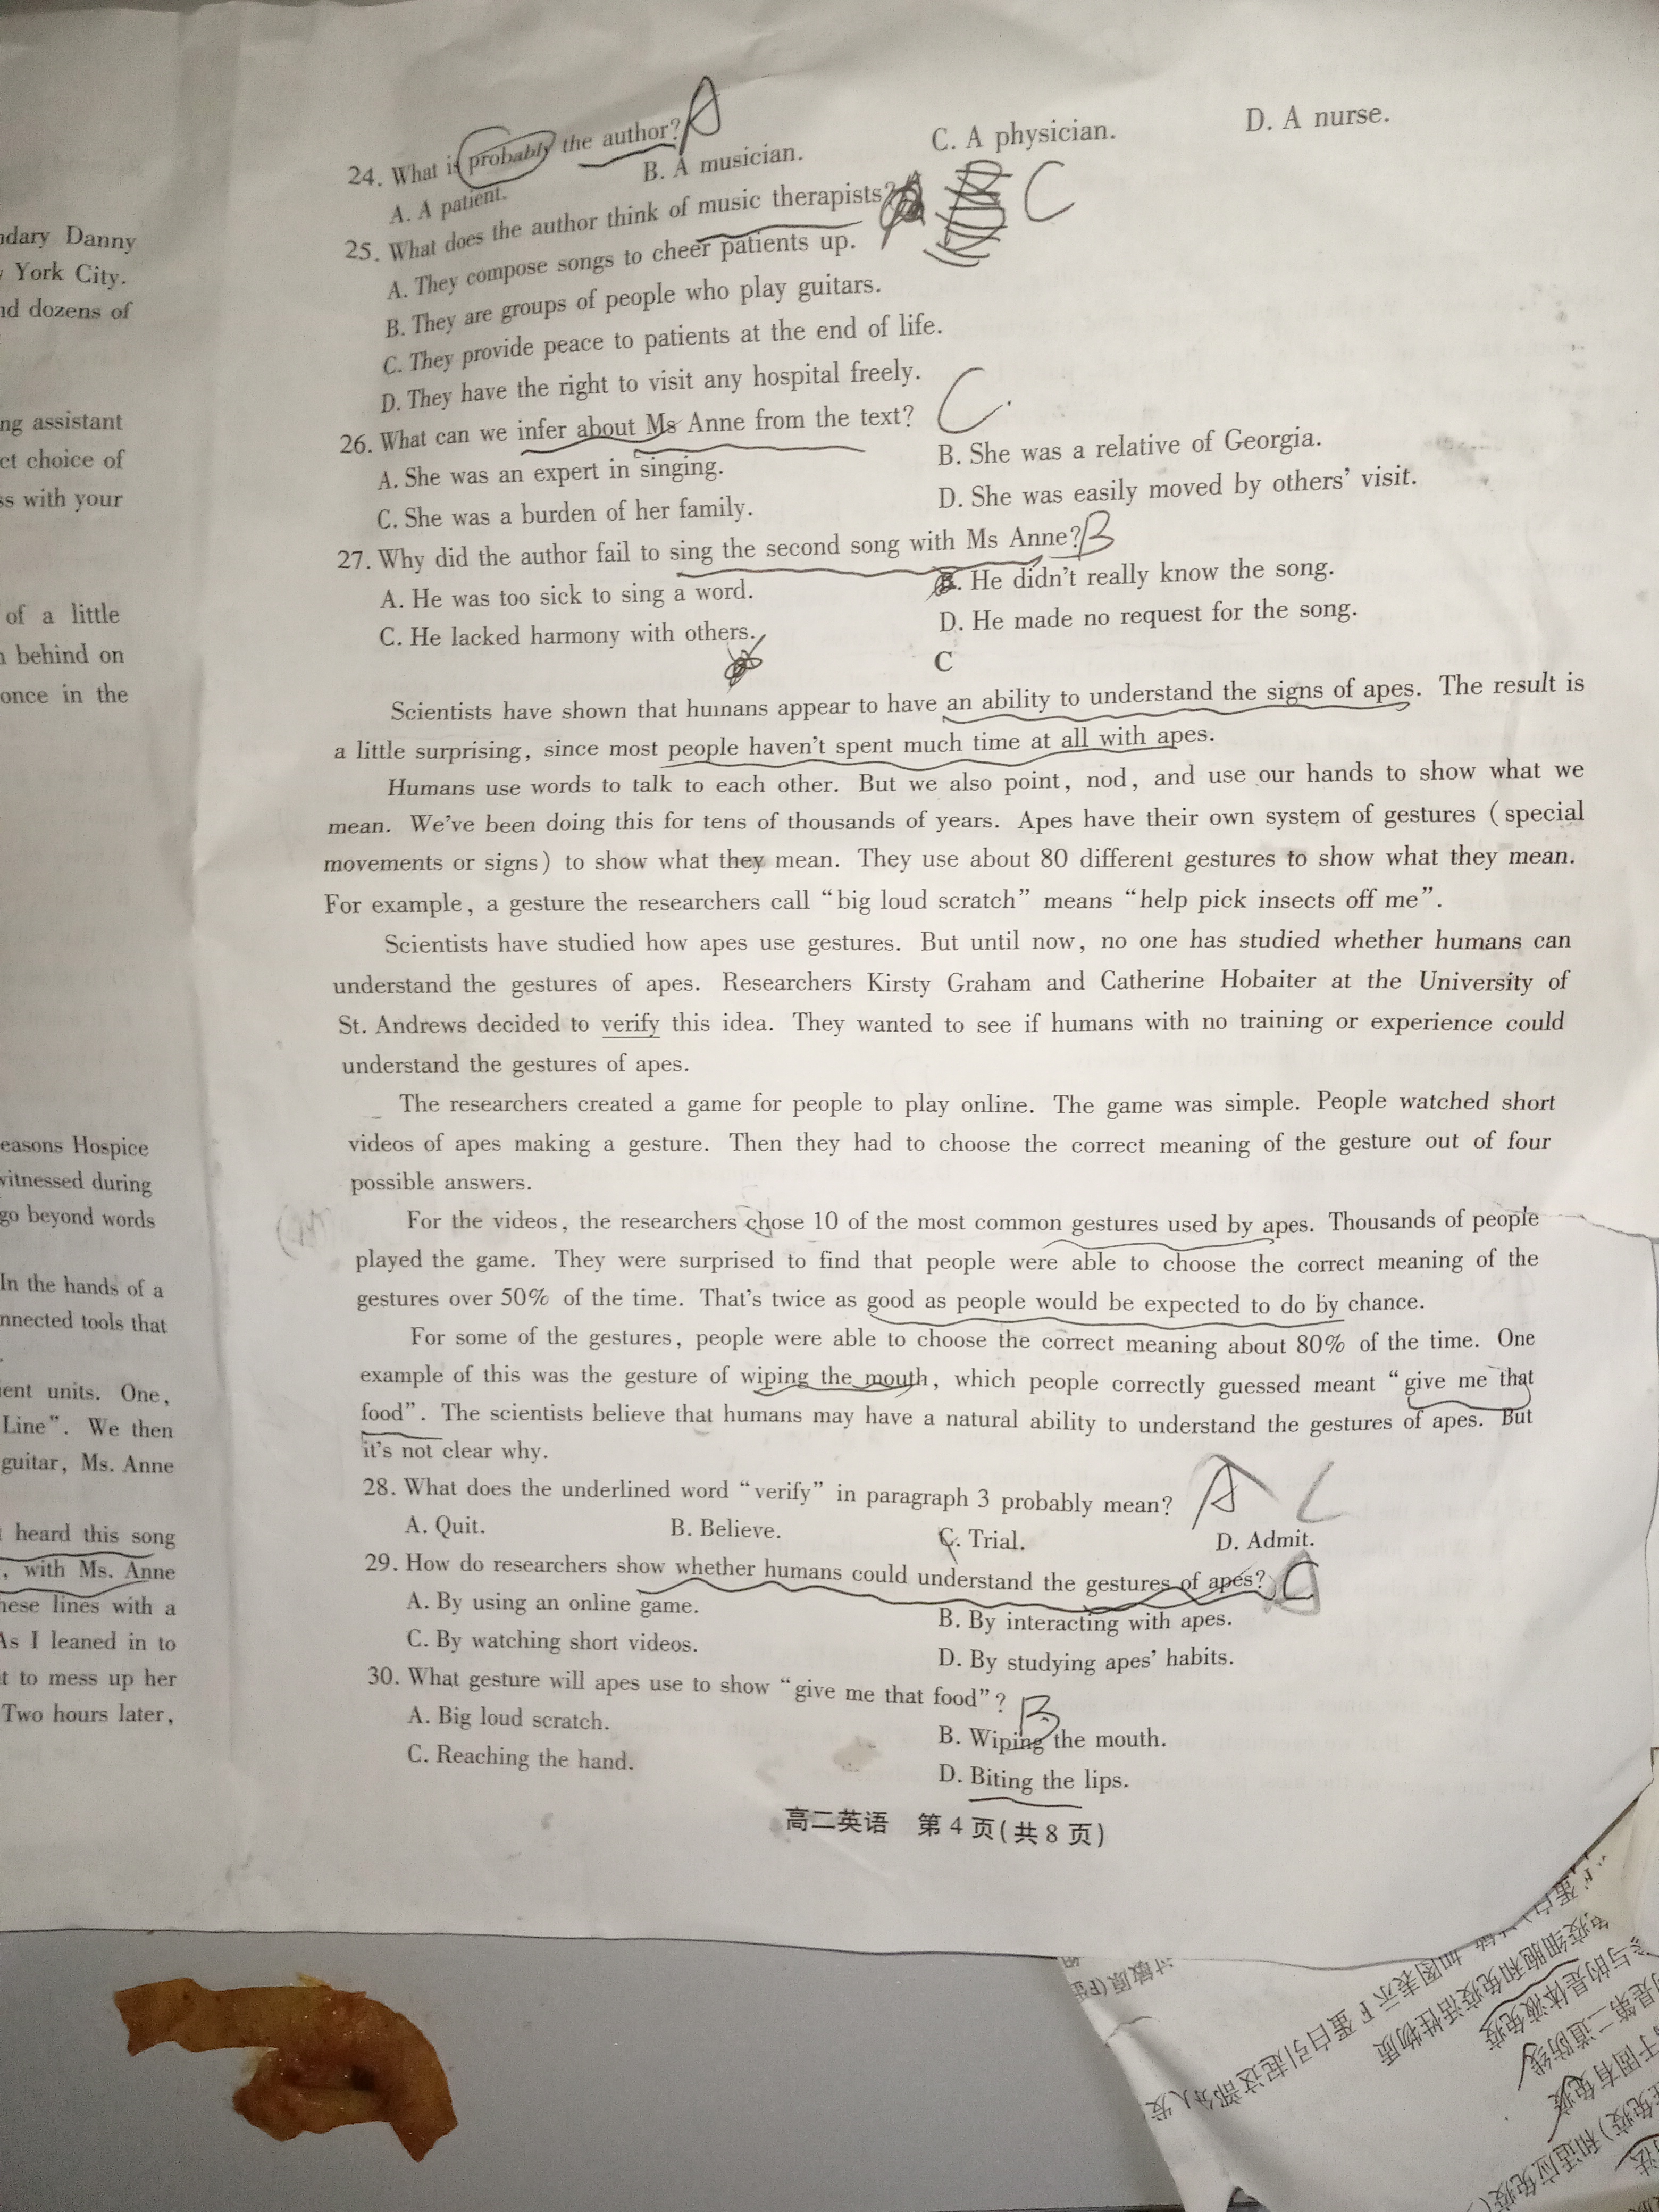 ndary Danny
York City.
nd dozens of
ng assistant
ct choice of
ss with your
of a little
behind on
once in the
easons Hospice
witnessed during
go beyond words
In the hands of a
nnected tools that
ient units. One,
Line”. We then
guitar, Ms. Anne
heard this song
, with Ms. Anne
hese lines with a
As I leaned in to
t to mess up her
Two hours later,
24. What is probably the author? A
A. A patient. B. A musician. C. A physician. D. A nurse.
25. What does the author think of music therapists? C
A. They compose songs to cheer patients up.
B. They are groups of people who play guitars.
C. They provide peace to patients at the end of life.
D. They have the right to visit any hospital freely.
26. What can we infer about Ms Anne from the text? C.
A. She was an expert in singing. B. She was a relative of Georgia.
C. She was a burden of her family. D. She was easily moved by others’ visit.
27. Why did the author fail to sing the second song with Ms Anne? B
A. He was too sick to sing a word. B. He didn’t really know the song.
C. He lacked harmony with others. D. He made no request for the song.
C
Scientists have shown that humans appear to have an ability to understand the signs of apes. The result is
a little surprising, since most people haven’t spent much time at all with apes.
Humans use words to talk to each other. But we also point, nod, and use our hands to show what we
mean. We’ve been doing this for tens of thousands of years. Apes have their own system of gestures (special
movements or signs) to show what they mean. They use about 80 different gestures to show what they mean.
For example, a gesture the researchers call “big loud scratch” means “help pick insects off me”.
Scientists have studied how apes use gestures. But until now, no one has studied whether humans can
understand the gestures of apes. Researchers Kirsty Graham and Catherine Hobaiter at the University of
St. Andrews decided to verify this idea. They wanted to see if humans with no training or experience could
understand the gestures of apes.
The researchers created a game for people to play online. The game was simple. People watched short
videos of apes making a gesture. Then they had to choose the correct meaning of the gesture out of four
possible answers.
For the videos, the researchers chose 10 of the most common gestures used by apes. Thousands of people
played the game. They were surprised to find that people were able to choose the correct meaning of the
gestures over 50% of the time. That’s twice as good as people would be expected to do by chance.
For some of the gestures, people were able to choose the correct meaning about 80% of the time. One
example of this was the gesture of wiping the mouth, which people correctly guessed meant “give me that
food”. The scientists believe that humans may have a natural ability to understand the gestures of apes. But
it’s not clear why.
28. What does the underlined word “verify” in paragraph 3 probably mean? A C
A. Quit. B. Believe. C. Trial. D. Admit.
29. How do researchers show whether humans could understand the gestures of apes?
A. By using an online game. B. By interacting with apes.
C. By watching short videos. D. By studying apes’ habits.
30. What gesture will apes use to show “give me that food”? B
A. Big loud scratch. B. Wiping the mouth.
C. Reaching the hand. D. Biting the lips.
高二英语 第4页(共8页)
如图表示F蛋白引起这部分人发
疫细胞和免疫活性物质
与的是体液免疫
是第二道防线
于固有免疫
免疫)和适应免疫